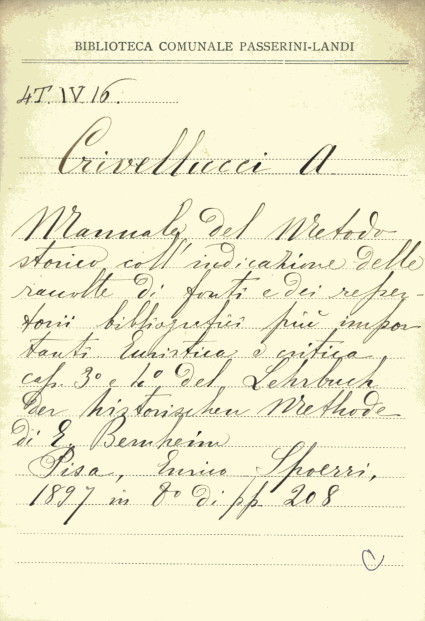 BIBLIOTECA COMUNALE PASSERINI-LANDI
4T. IV. 16.
Crivellucci A
Manuale del Metodo
storico coll'indicazione delle
raccolte di fonti e dei reper-
torii bibliografici più impor
tanti Euristica e critica
cap. 3º e 4º del Lehrbuch
der historischen Methode
di E. Bernheim
Pisa, Enrico Spoerri,
1897 in 8º di pp. 208
C